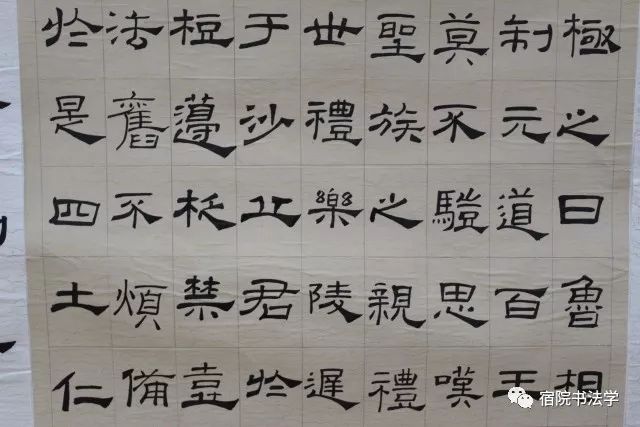 極之日魯相
制元道百王
莫不思嘆
聖族之親禮
世禮樂陵遲
于沙丘君於
梪籩柉禁壺
法舊不煩備
於是四土仁
宿院书法学